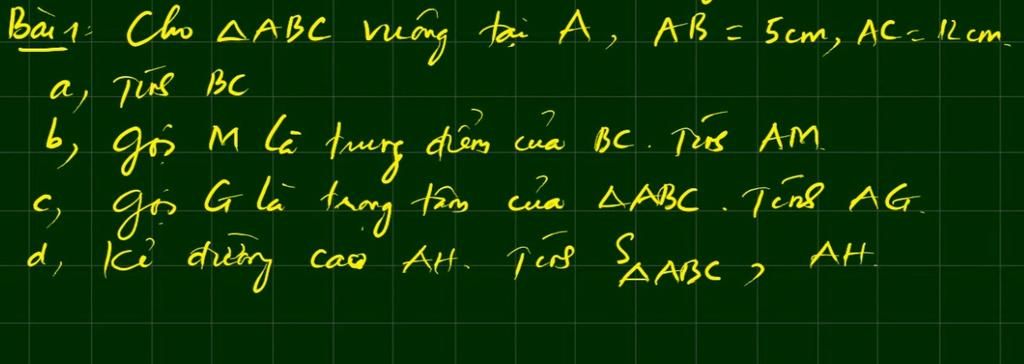 Bài 1: Cho △ABC vuông tại A, AB = 5cm, AC = 12cm.
a, Tính BC
b, gọi M là trung điểm của BC. Tính AM.
c, gọi G là trọng tâm của △ABC. Tính AG.
d, Kẻ đường cao AH. Tính S△ABC, AH.